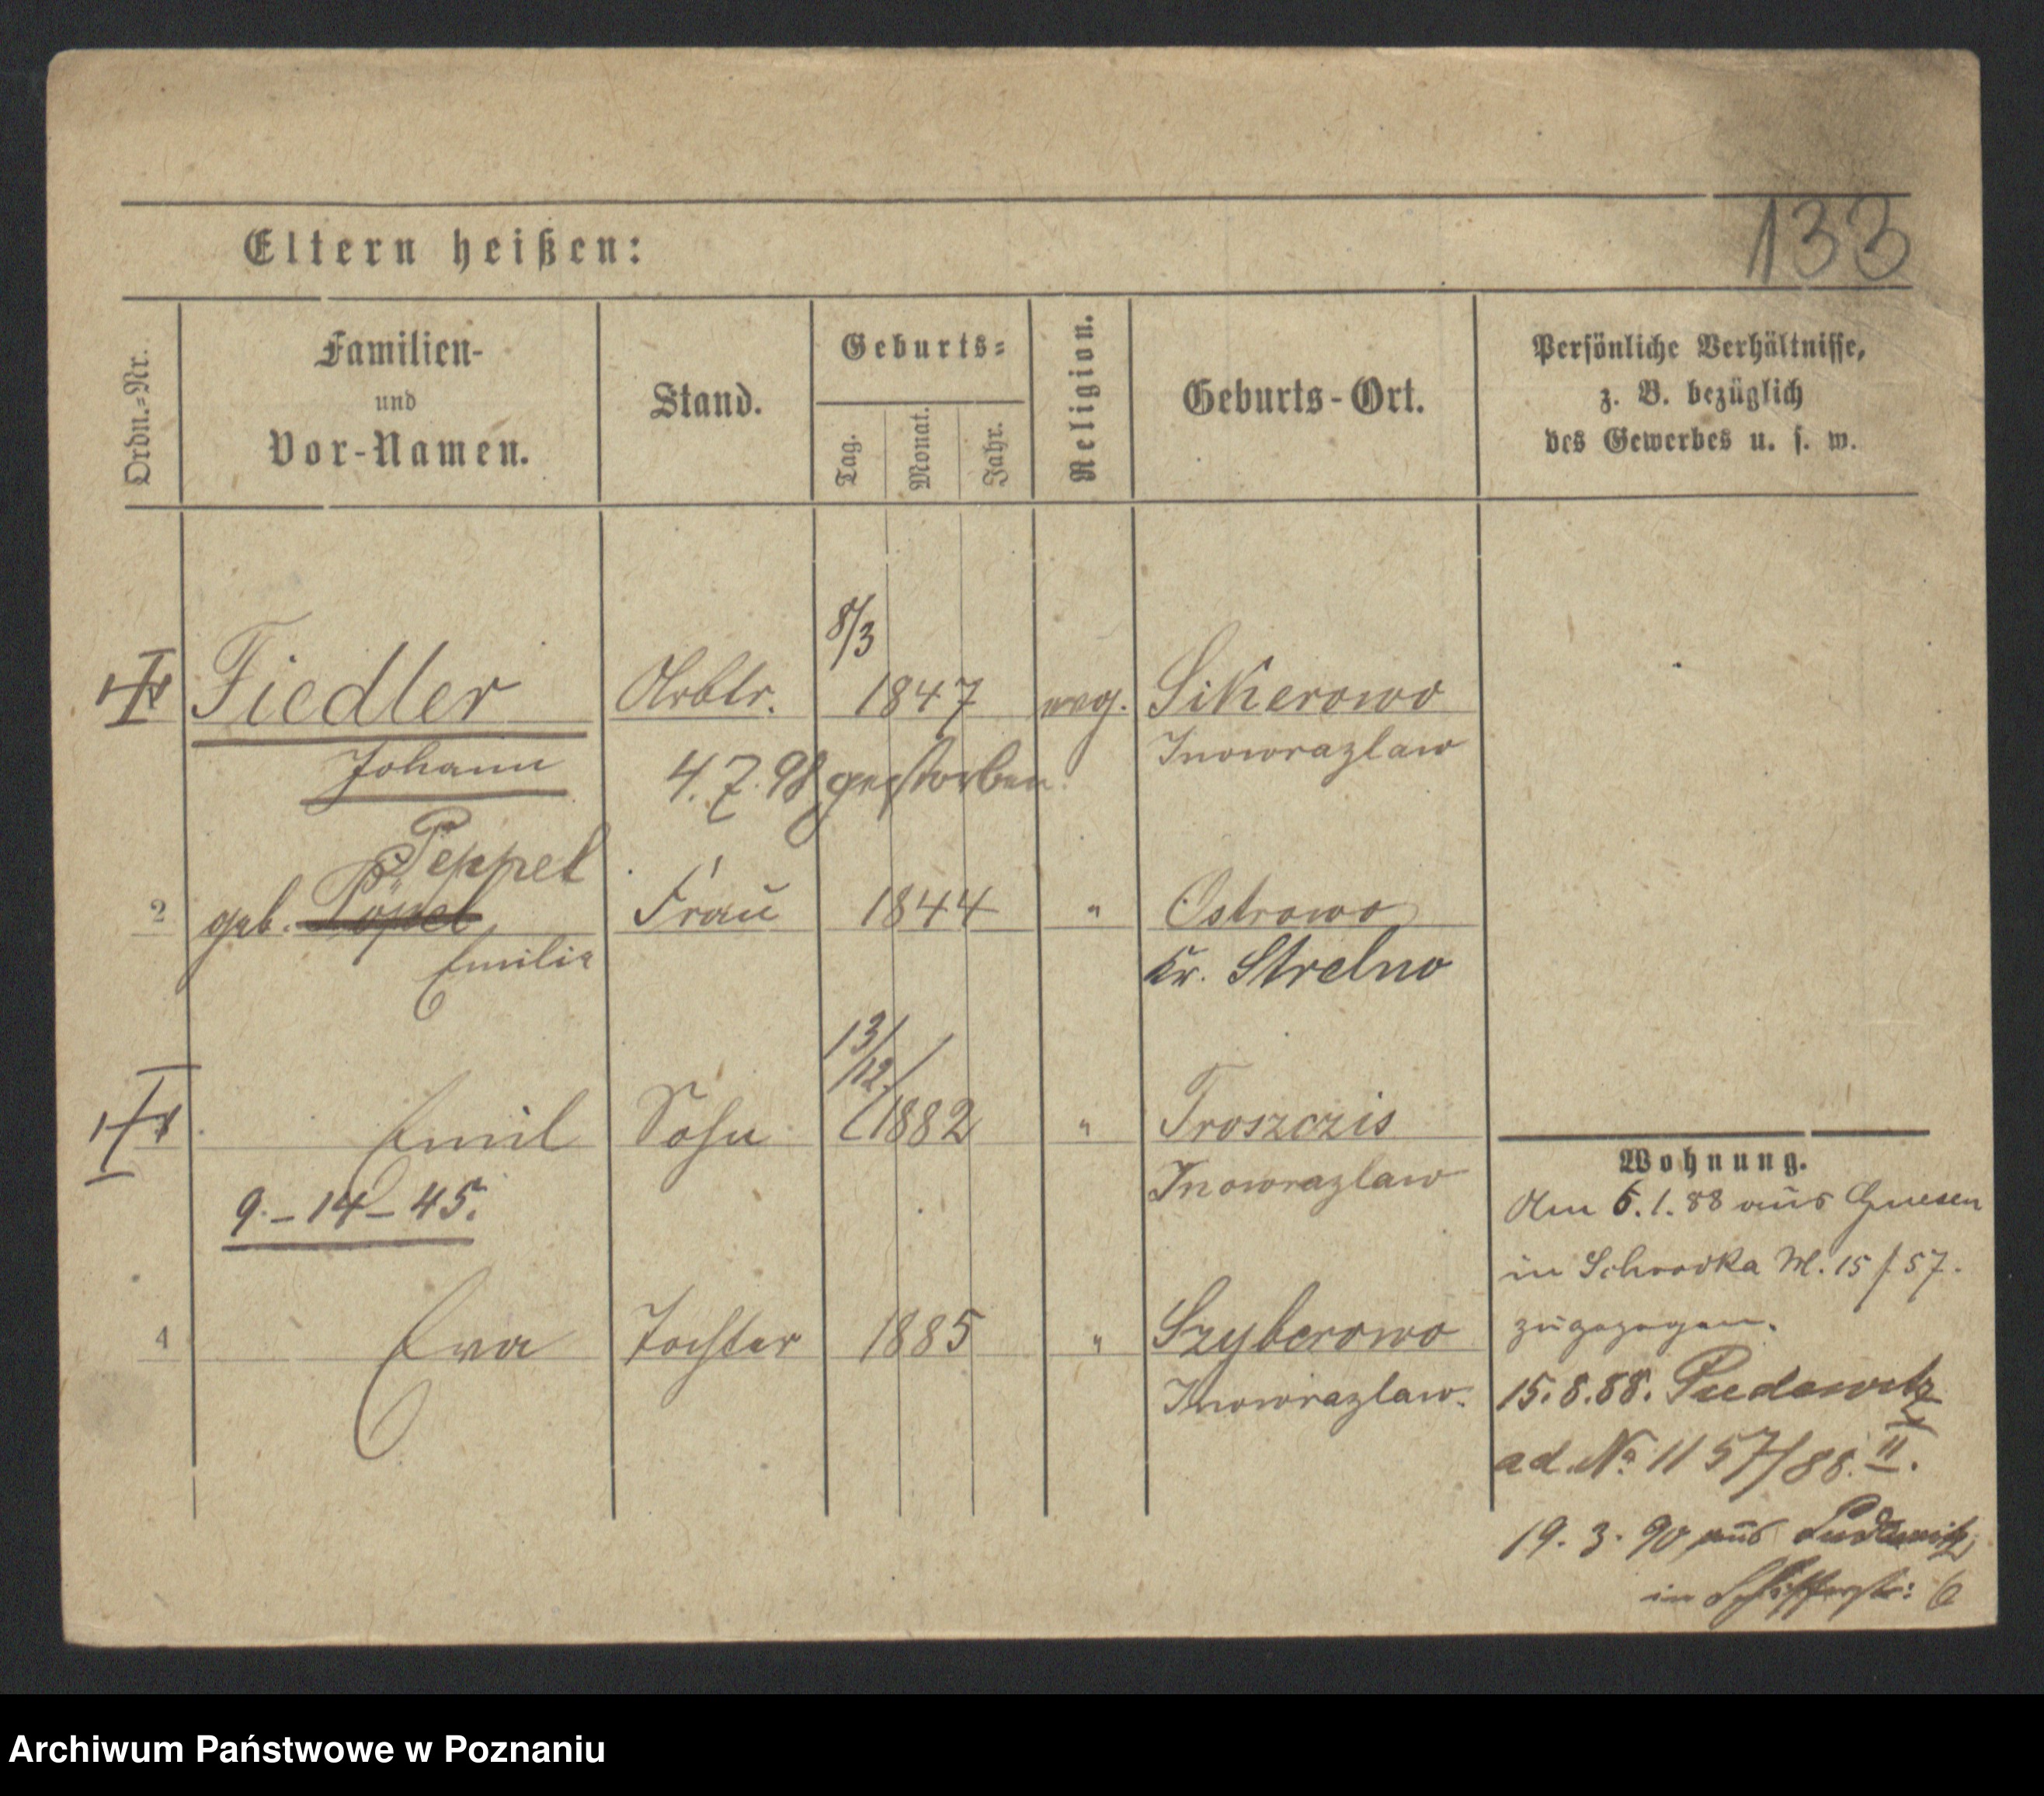 133
Eltern heißen:
Ordn.=Nr.
Familien-
und
Vor-Namen.
Stand.
Geburts=
Tag.
Monat.
Jahr.
Religion.
Geburts-Ort.
Persönliche Verhältnisse,
z. B. bezüglich
des Gewerbes u. s. w.
8/3
Fiedler Arbtr. 1847 Sikerowo
Johann Inowrazlaw
4. 7. 98 gestorben
Peppel
2 geb. Pöpel Frau 1844 " Ostrowo
Emilie Kr. Strelno
13/12
Emil Sohn 1882 " Troszczis
Inowrazlaw
9. - 14 - 45.
4 Eva Tochter 1885 " Szyberowo
Inowrazlaw.
Wohnung.
Am 6. 1. 88 aus Gnesen
in Schrodka M. 15/57.
zugezogen.
15. 8. 88. Pudewitz
ad. No 1157/88. II.
19. 3. 90 aus Pudewitz
in 6
Archiwum Państwowe w Poznaniu